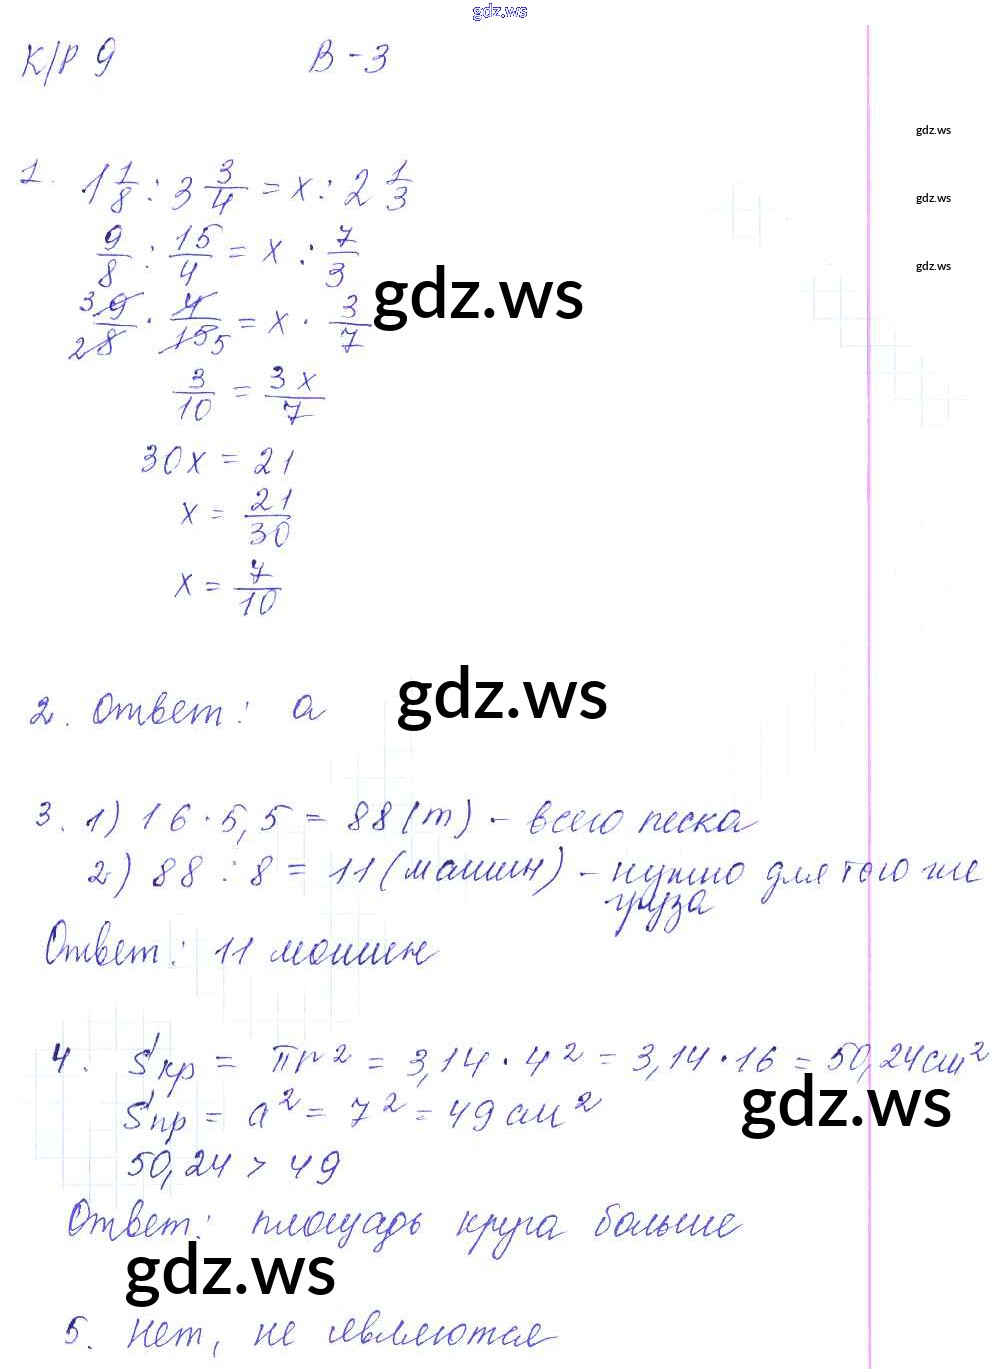 gdz.ws
К/Р 9 В-3
gdz.ws
1. 1 1/8 : 3 3/4 = x : 2 1/3
gdz.ws
9/8 : 15/4 = x : 7/3
gdz.ws
gdz.ws
3 9/2 8 · 4/15 5 = x · 3/7
3/10 = 3x/7
30x = 21
x = 21/30
x = 7/10
2. Ответ: а
gdz.ws
3. 1) 16 · 5,5 = 88 (т) - всего песка
2) 88 : 8 = 11 (машин) - нужно для того же
груза
Ответ: 11 машин
4. Sкр = πr² = 3,14 · 4² = 3,14 · 16 = 50,24 см²
Sпр = a² = 7² = 49 см²
gdz.ws
50,24 > 49
Ответ: площадь круга больше
gdz.ws
5. Нет, не являются